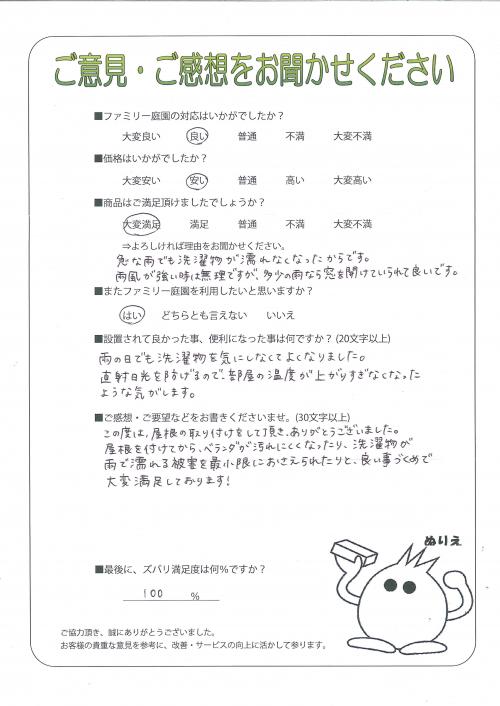 ご意見・ご感想をお聞かせください
■ファミリー庭園の対応はいかがでしたか？
大変良い 良い 普通 不満 大変不満
■価格はいかがでしたか？
大変安い 安い 普通 高い 大変高い
■商品はご満足頂けましたでしょうか？
大変満足 満足 普通 不満 大変不満
⇒よろしければ理由をお聞かせください。
急な雨でも洗濯物が濡れなくなったからです。
雨風が強い時は無理ですが、多少の雨なら窓を開けていられて良いです。
■またファミリー庭園を利用したいと思いますか？
はい どちらとも言えない いいえ
■設置されて良かった事、便利になった事は何ですか？(20文字以上)
雨の日でも洗濯物を気にしなくてよくなりました。
直射日光を防げるので、部屋の温度が上がりすぎなくなった
ような気がします。
■ご感想・ご要望などをお書きくださいませ。(30文字以上)
この度は、屋根の取り付けをして頂き、ありがとうございました。
屋根を付けてから、ベランダが汚れにくくなったり、洗濯物が
雨で濡れる被害を最小限におさえられたりと、良い事づくめで
大変満足しております！
ぬりえ
■最後に、ズバリ満足度は何％ですか？
100 ％
ご協力頂き、誠にありがとうございました。
お客様の貴重な意見を参考に、改善・サービスの向上に活かして参ります。